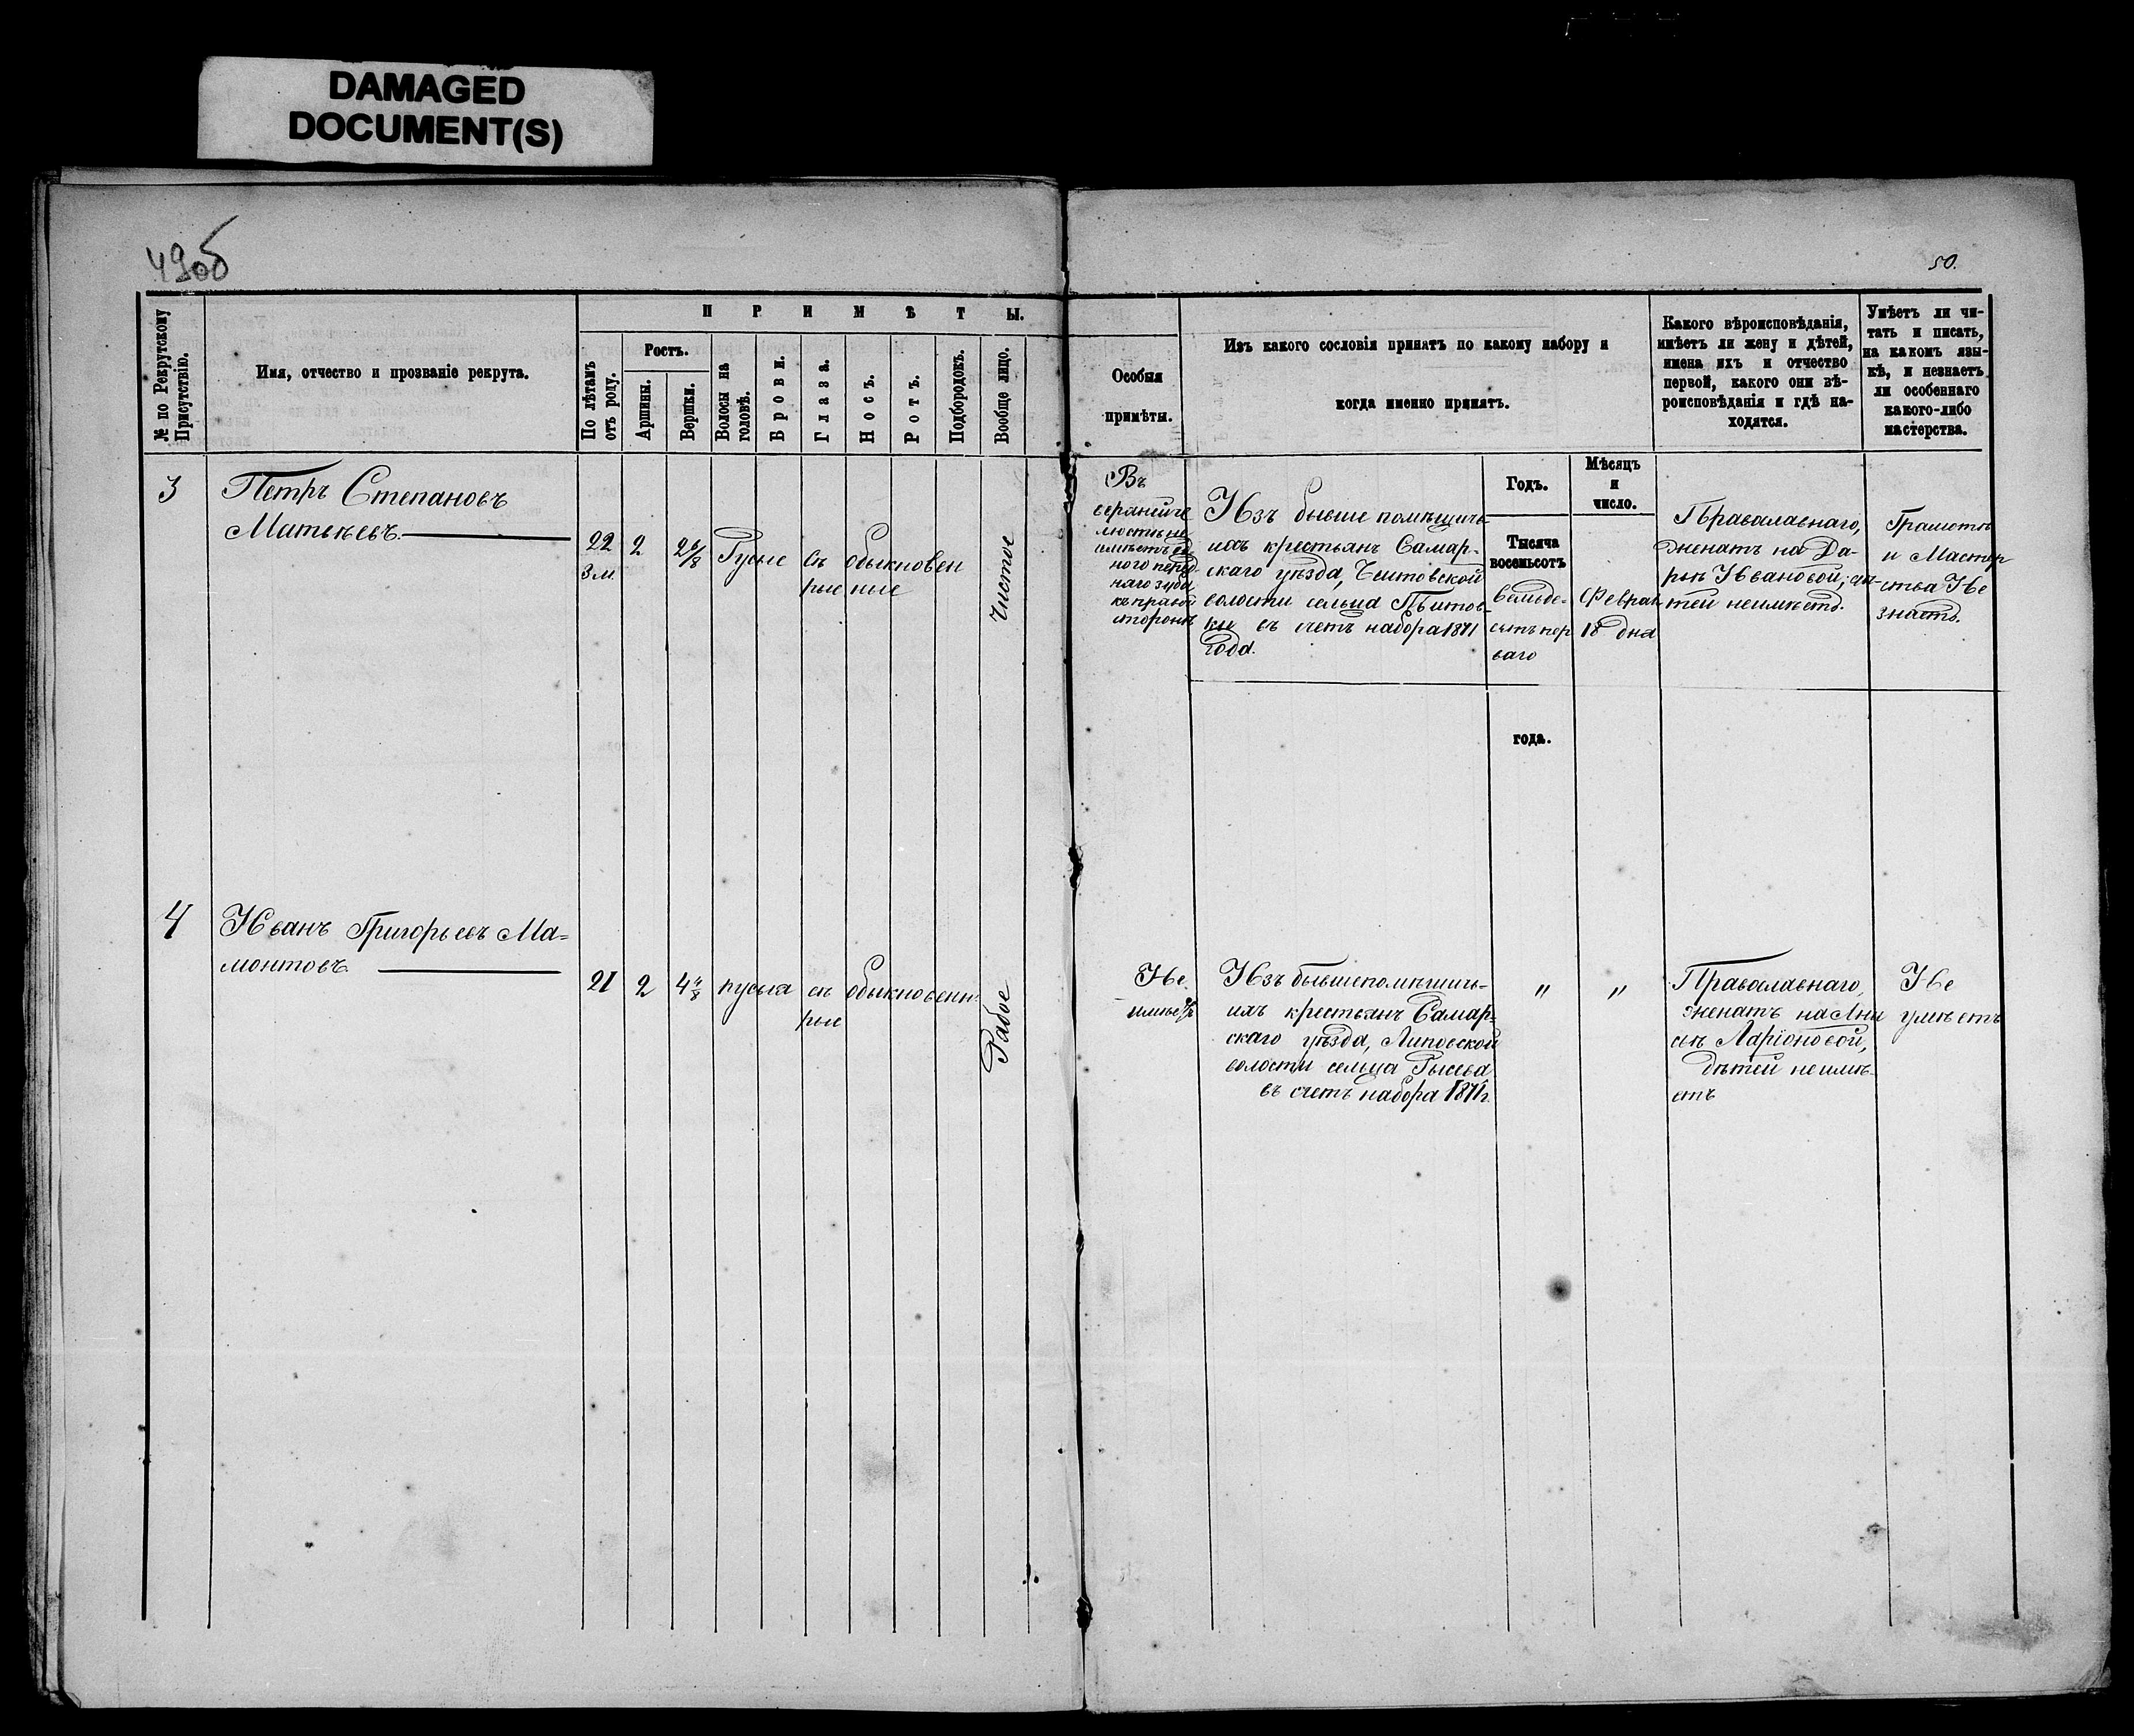 DAMAGED
DOCUMENT(S)
49об
50.
№ по Рекрутскому
Присутствію.
Имя, отчество и прозваніе рекрута.
ПРИМѢТЫ.
По лѣтамъ
отъ роду.
Ростъ.
Аршины.
Вершки.
Волосы на
головѣ.
Брови.
Глаза.
Носъ.
Ротъ.
Подбородокъ.
Вообще лицо.
Особыя
примѣты.
Изъ какого сословія принятъ по какому набору и
когда именно принятъ.
Какого вѣроисповѣданія,
имѣетъ ли жену и дѣтей,
имена ихъ и отчество
первой, какого они вѣ-
роисповѣданія и гдѣ на-
ходятся.
Умѣетъ ли чи-
тать и писать,
на какомъ язы-
кѣ, и незнаетъ
ли особеннаго
какого-либо
мастерства.
3
Петръ Степановъ
Матвѣевъ.
22
3 м.
2
2 6/8
Русые
Сѣ
рые
обыкновен
ные
Чистое
Въ
верхней че
люсти не
имѣетъ од
ного перед-
наго зуба
къ правой
сторонѣ
Изъ бывше помѣщичь-
ихъ крестьянъ Самар-
скаго уѣзда,
волости сельца
въ счетъ набора 1871
года.
Годъ.
Тысяча
восемьсотъ
семьде-
сятъ пер
ваго
года.
Мѣсяцъ
и
число.
Феврал
18 дня
Православнаго,
женатъ на Да-
рьѣ Ивановой, дѣ-
тей неимѣетъ.
Грамотѣ
и Мастер
ства Не
знаетъ.
4
Иванъ Григорьевъ Ма=
монтовъ
21
2
4 4/8
русыя
сѣ
рые
Обыкновенн.
Рябое
Не
имѣетъ
Изъ бывшепомѣщичь-
ихъ крестьянъ Самар-
скаго уѣзда, Липовской
волости сельца
въ счетъ набора 1871 г.
"
"
Православнаго,
женатъ на Ани
сьѣ Ларіоновой,
дѣтей неимѣ-
етъ
Не
умѣетъ